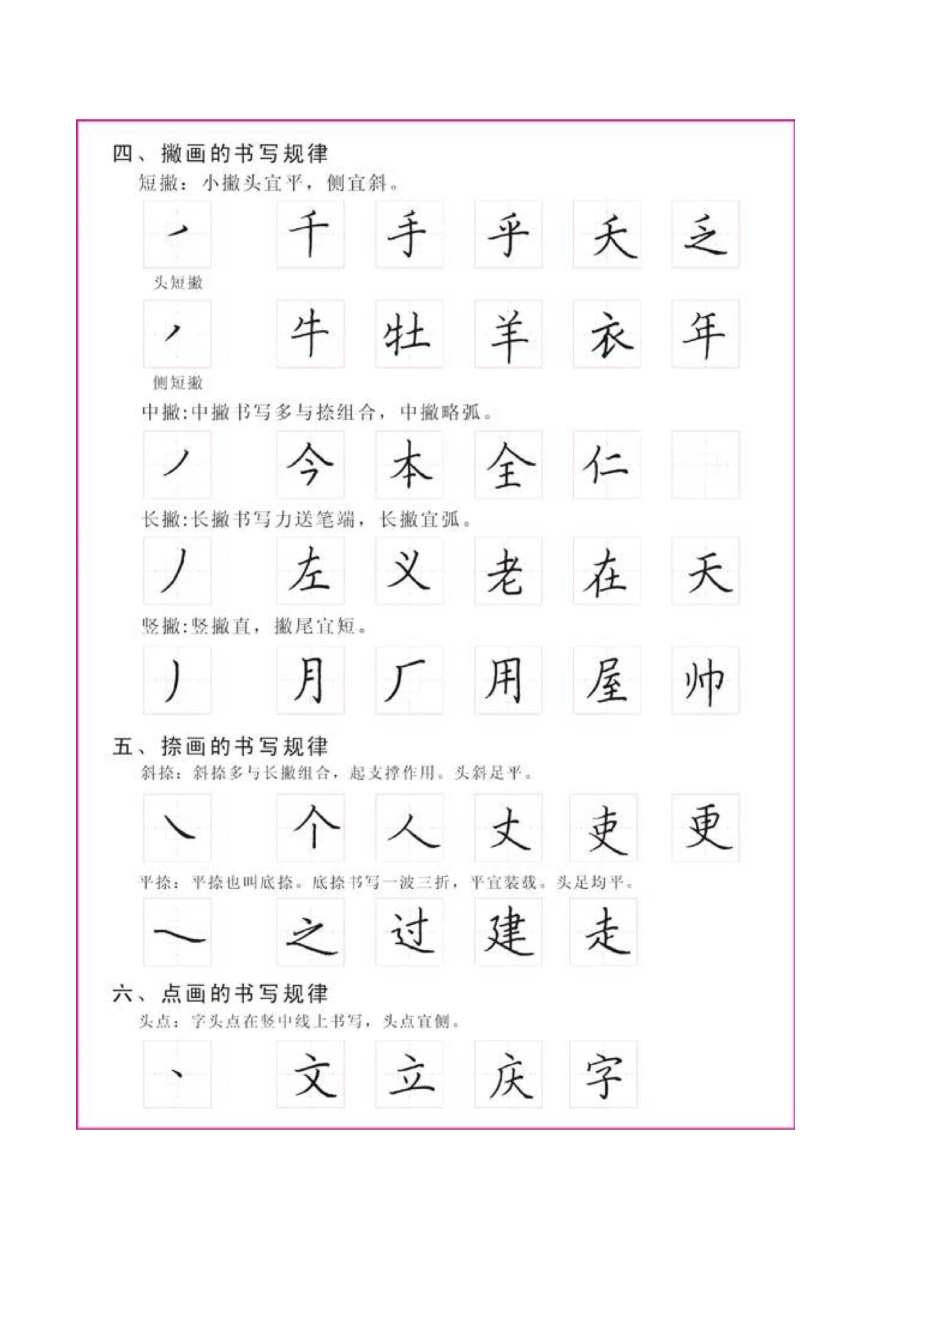 四、撇画的书写规律
短撇：小撇头宜平，侧宜斜。
㇒ 千 手 乎 夭 乏
头短撇
㇒ 牛 牡 羊 衣 年
侧短撇
中撇:中撇书写多与捺组合，中撇略弧。
丿 今 本 全 仁
长撇:长撇书写力送笔端，长撇宜弧。
丿 左 义 老 在 天
竖撇:竖撇直，撇尾宜短。
丿 月 厂 用 屋 帅
五、捺画的书写规律
斜捺：斜捺多与长撇组合，起支撑作用。头斜足平。
㇏ 个 人 丈 吏 更
平捺：平捺也叫底捺。底捺书写一波三折，平宜装载。头足均平。
㇏ 之 过 建 走
六、点画的书写规律
头点：字头点在竖中线上书写，头点宜侧。
丶 文 立 庆 字